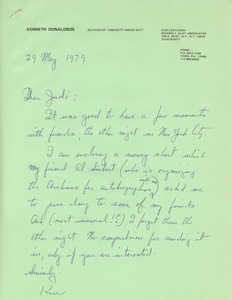 KENNETH DONALDSON
AUTHOR OF "INSANITY INSIDE OUT"
FOR LECTURES:
29 May 1979
Dear Judi:
It was good to have a few moments
with friends, the other night in New York City.
I am enclosing a survey sheet which
my friend Al Siebert (who is organizing
the Archives for autobiographies) asked me
to pass along to some of my friends.
And (most unusual !!) I forgot them the
other night. No compulsion for sending it
in, only if you are interested.
Sincerely,
Ken